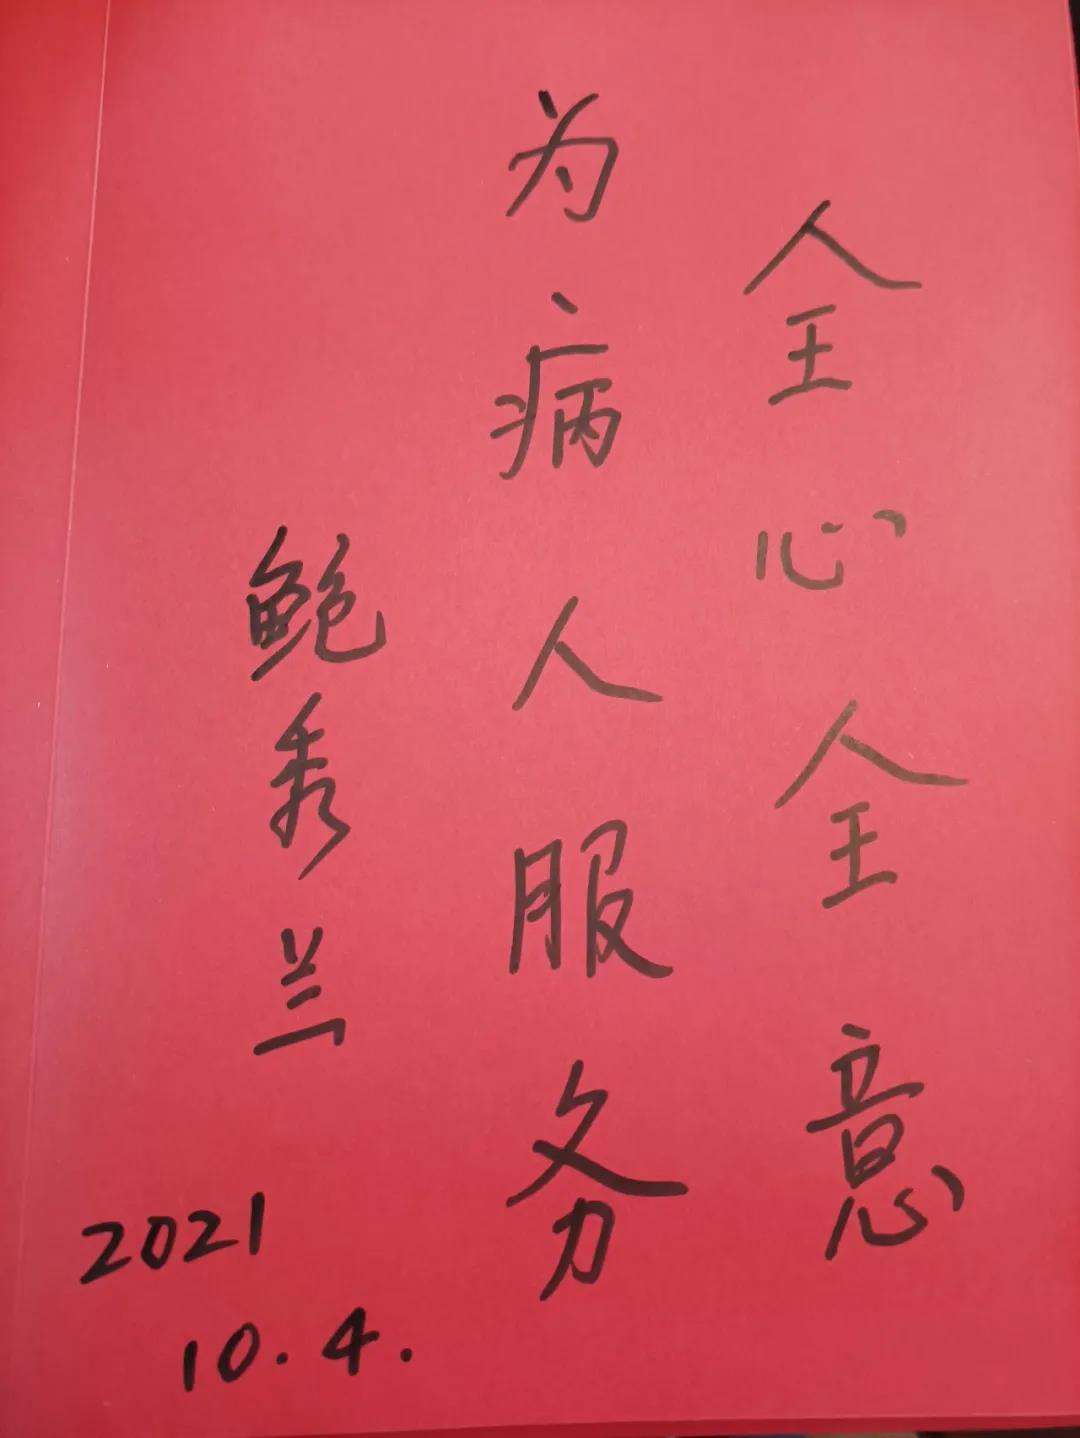 全心全意
为病人服务
鲍秀兰
2021
10.4.